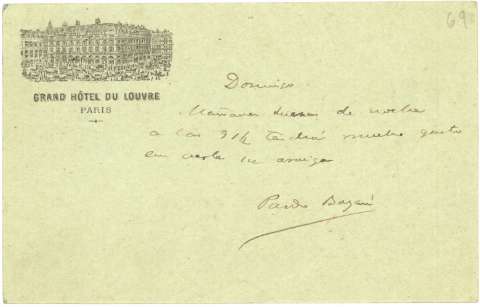 69
GRAND HÔTEL DU LOUVRE
PARIS
Domingo.
Mañana lunes de noche
a las 9 1/2 tendrá mucho gusto
en verla su amiga
Pardo Bazán